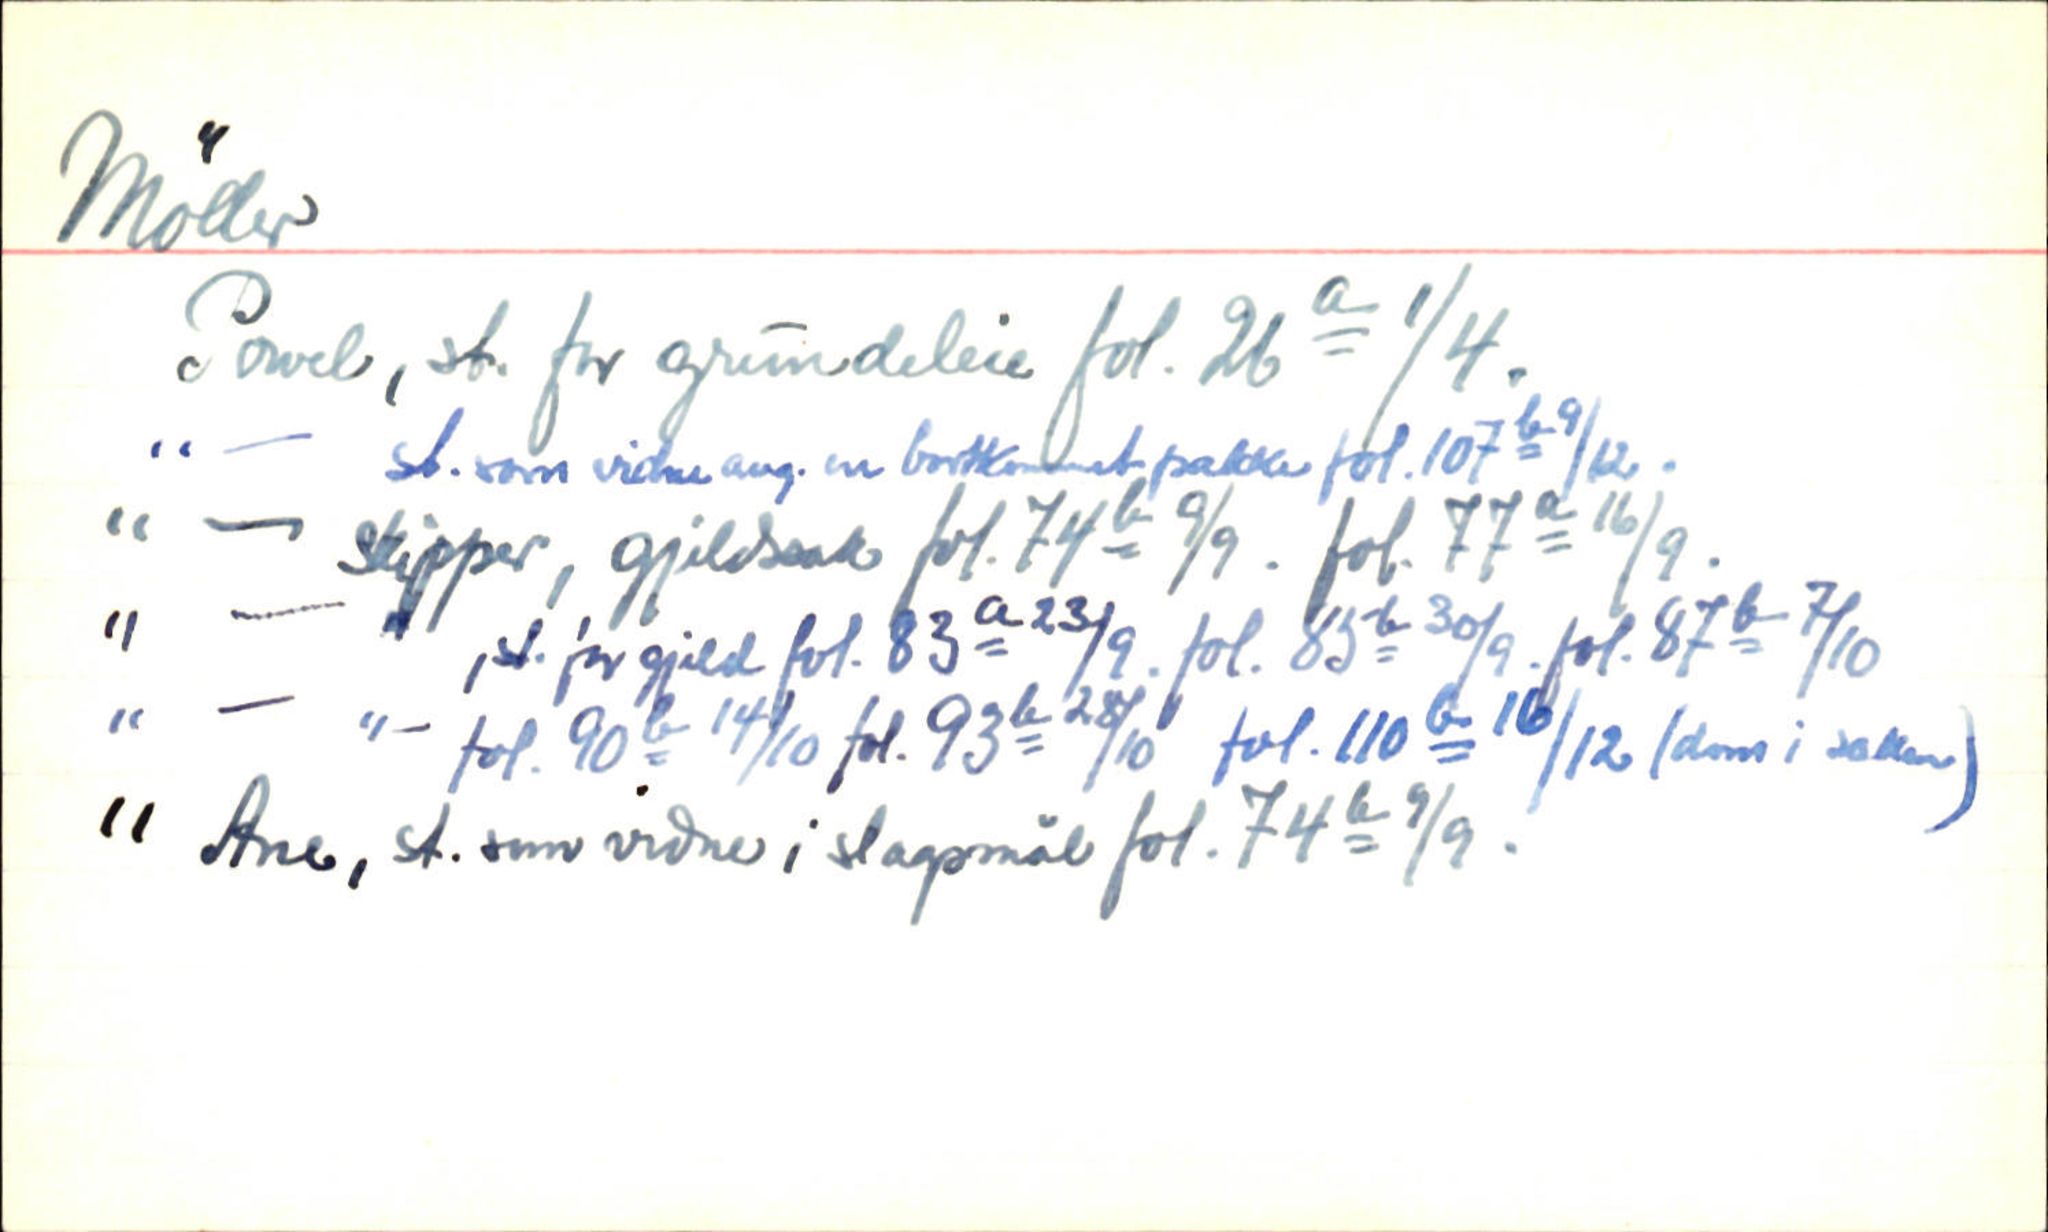 Möller
Powel, st. for grundeleie fol. 26 a 1/4.
" — st. som vidne ang. en bortkommet pakke fol. 107 b 9/12.
" — Skipper, gjeldsak fol. 74 b 9/9. fol. 77 a 16/9.
" — " , st. for gjeld fol. 83 a 23/9. fol. 85 b 30/9. fol. 87 b 7/10
" — "- fol. 90 b 14/10 fol. 93 b 28/10 fol. 110 b 16/12 (dom i saken)
" Ane, st. som vidne i slagsmål fol. 74 b 9/9.